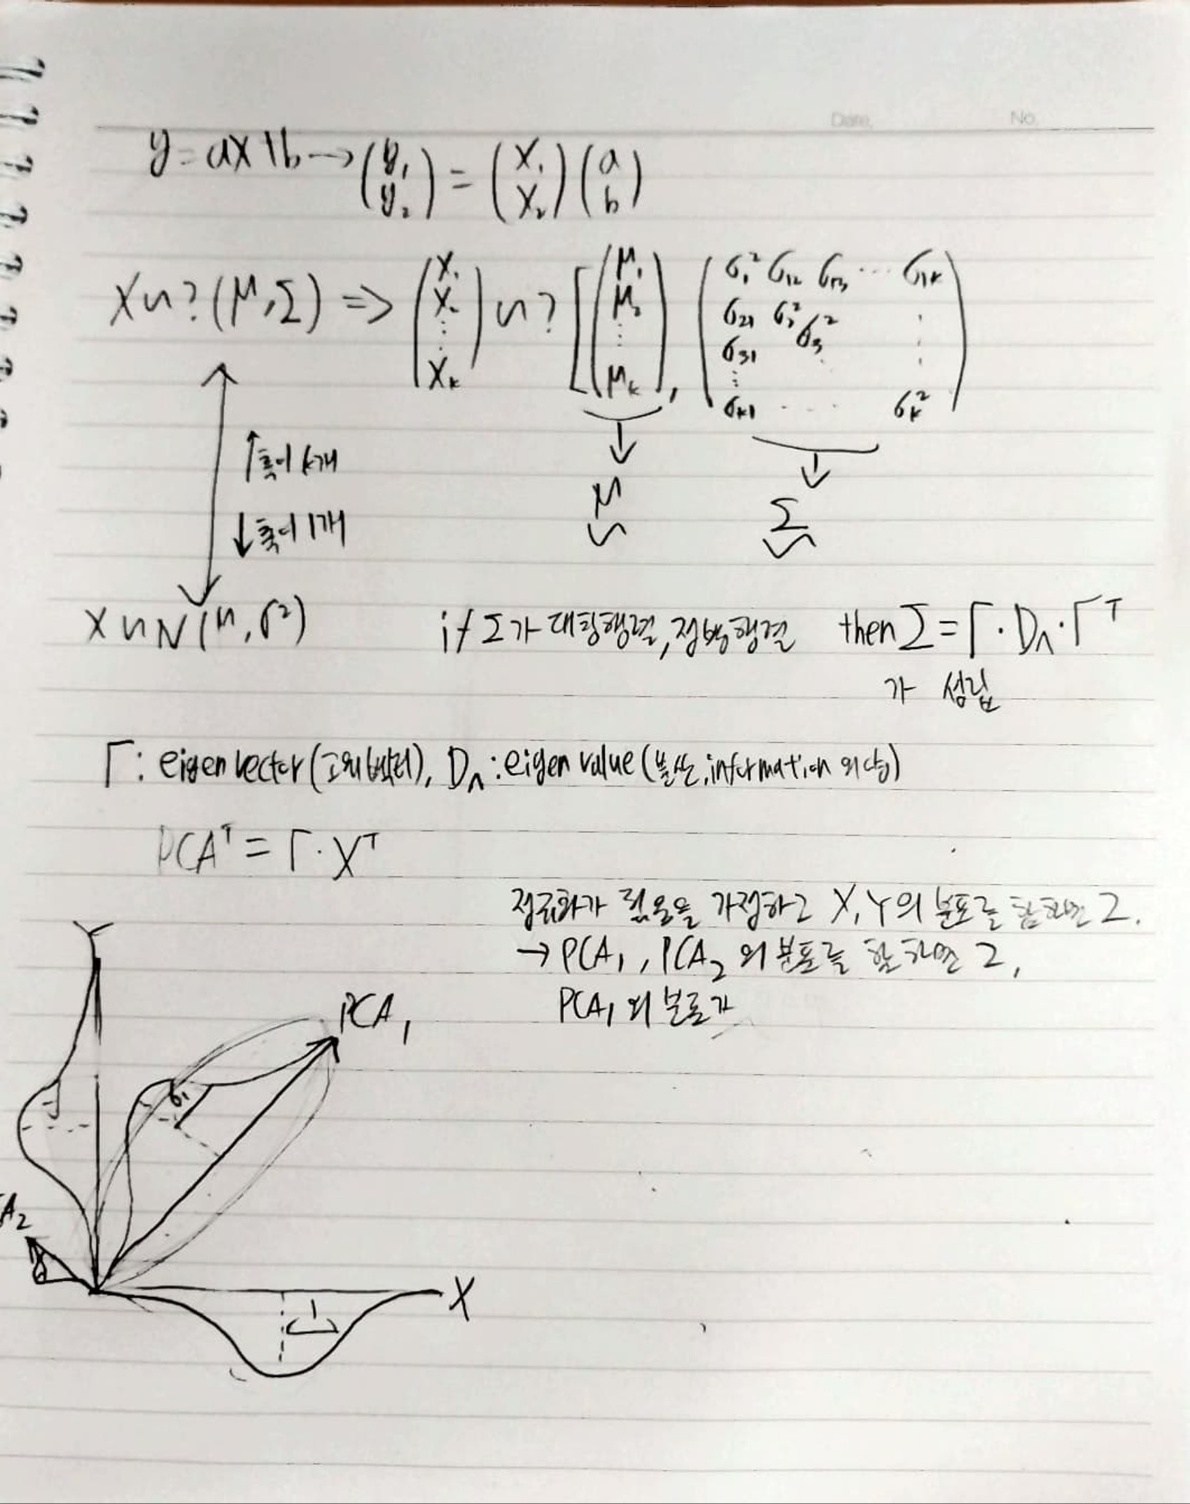 Date, No,
y = ax+b → (y₁ y₂) = (x₁ x₂)(a b)
X ~ ? (μ, Σ) => (X₁ X₂ ⋮ Xₖ) ~ ? [(μ₁ μ₂ ⋮ μₖ), (σ₁² σ₁₂ σ₁₃ ⋯ σ₁ₖ
σ₂₁ σ₂² ⋮
σ₃₁ σ₃² ⋮
⋮
σₖ₁ ⋯ σₖ²)]
↑축이 k개
↓축이 1개
μ Σ
X ~ N(μ, σ²)
if Σ가 대칭행렬, 정방행렬 then Σ = Γ · D_Λ · Γᵀ
가 성립
Γ: eigen vector (고유벡터), D_Λ: eigen value (분산, information의 양)
PCAᵀ = Γ · Xᵀ
정규화가 됬음을 가정하고 X, Y의 분포를 합하면 2.
→ PCA₁, PCA₂의 분포를 합하면 2,
PCA₁의 분포가
Y
PCA₁
σ₁
A₂
X
1